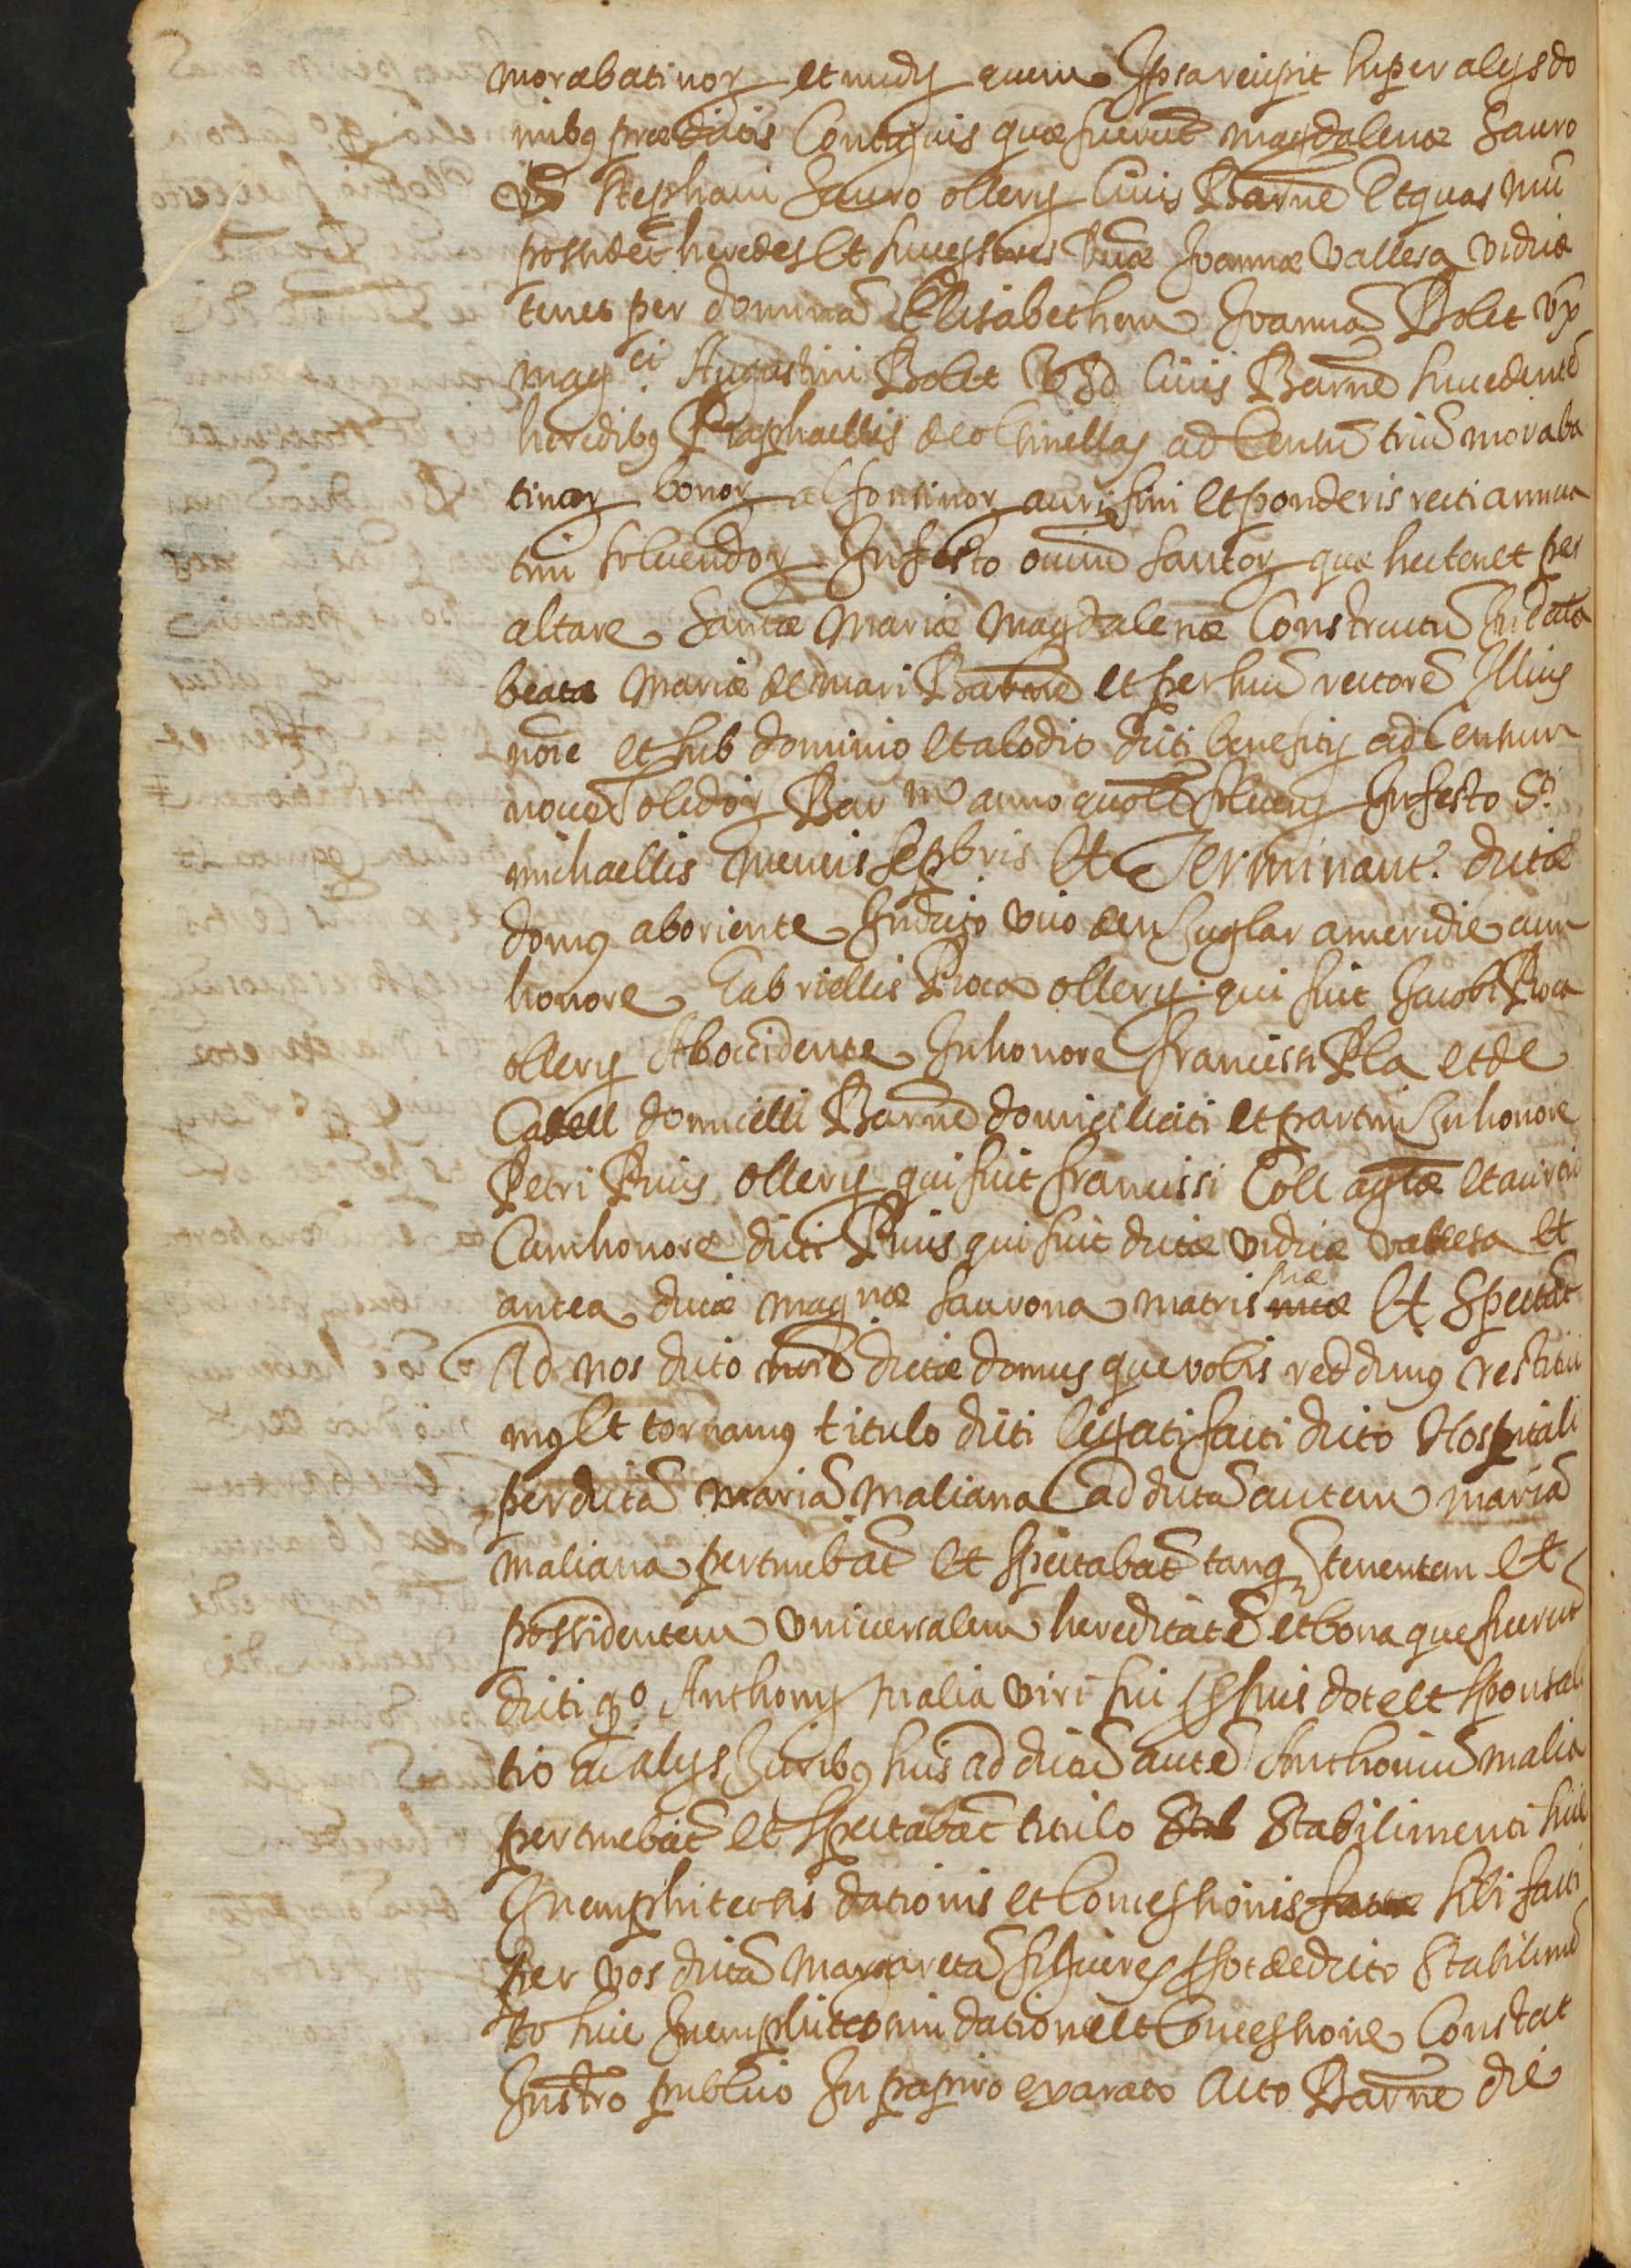 morabatinor et medy quem Ipsa recipit super alys do
mibus prædictis Contiguis quæ fuerut magdalenæ Sauro
Stephani Sauro ollery Civis Barne Et quas nũc
possidet heredes Et successores Joannæ Vallesa viduæ
tenet per dominã Elisabethem Joannã Bolet vx
mag.ci Augustini Bolet VJD Civis Barne succedente
heredibus Raphaellis de Chinellas ad Censũ triũ moraba
tinor bonor alfonsinor auri fini Et ponderis recti annua
tim solvendor In festo oniũ Sanctor quæ hec tenet per
altare Sanctæ Mariæ Magdalenæ Constructũ In
beatæ Mariæ de mari Barne et per huiũ rectorẽ Illius
noie et sub dominio Et alodio dicti benefity ad Censum
novẽ solidor Bar.ne anno quolt solvens In festo S.ti
michaellis mensis Sepbris Et Terminant.r dictæ
domus ab oriente In dicto vico den Juglar a meridie cum
honore Gabriellis Roca ollery qui fuit Jacobi Roca
ollery Ab occidente In honore francissi Pla et de
Cadell domicelli Barne domiciliati et partim In honore
Petri Riuis ollery qui fuit francissi Coll agtæ Et a circio
Cum honore dicti Riuis qui fuit dictæ viduæ vallesa Et
antea dictæ mag.næ Saurona matris suæ Et Spectãt
Ad nos dicto noie dictæ domus que vobis reddimus restitui
mus Et tornamus titulo dicti legati facti dicto Hospitali
per dictã Mariã Maliana Et ad dictã autem mariã
Maliana pertinebãt Et Spectabãt tanq tenentem Et
possidentem universalem hereditatẽ et bona que fuerut
dicti q.o Anthony Malia viri sui sui dote et sponsali
tio ac alys Juribus suis ad dictũ autẽ Anthoniũ Malia
pertinebãt et Spectabãt titulo Stab Stabilimenti sive
In emphiteosis dationis et Concessionis factæ sibi facti
Per vos dictã Margaretã pro ut de dicto Stabilimẽ
to sive In emphiteosim datione et Concessione Constat
Instro publico In papiro exarato Acto Barne die